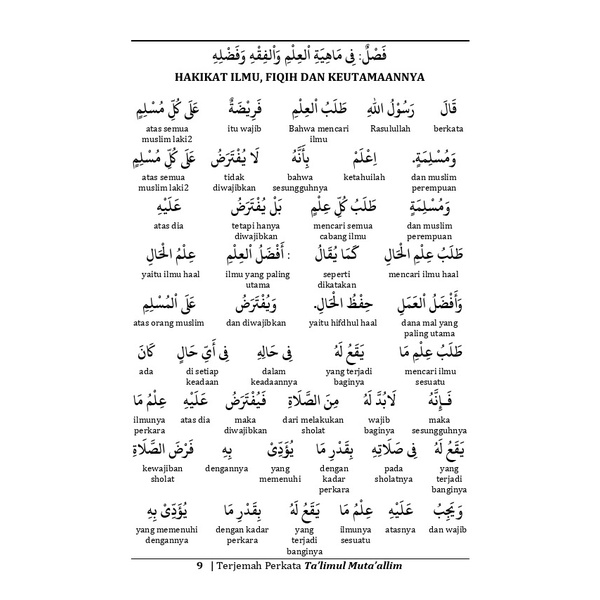 فَصْلٌ: فِى مَاهِيَةِ اْلعِلْمِ وَاْلفِقْهِ وَفَضْلِهِ
HAKIKAT ILMU, FIQIH DAN KEUTAMAANNYA
قَالَ رَسُوْلُ اللهِ طَلَبُ اْلعِلْمِ فَرِيْضَةٌ عَلَى كُلِّ مُسْلِمٍ
berkata Rasulullah Bahwa mencari ilmu itu wajib atas semua muslim laki2
وَمُسْلِمَةٍ. اِعْلَمْ بِأَنَّهُ لَا يُفْتَرَضُ عَلَى كُلِّ مُسْلِمٍ
dan muslim perempuan ketahuilah bahwa sesungguhnya tidak diwajibkan atas semua muslim laki2
وَمُسْلِمَةٍ طَلَبُ كُلِّ عِلْمٍ بَلْ يُفْتَرَضُ عَلَيْهِ
dan muslim perempuan mencari semua cabang ilmu tetapi hanya diwajibkan atas dia
طَلَبُ عِلْمِ الْحَالِ كَمَا يُقَالُ : أَفْضَلُ اْلعِلْمِ عِلْمُ الْحَالِ
mencari ilmu haal seperti dikatakan ilmu yang paling utama yaitu ilmu haal
وَأَفْضَلُ اْلعَمَلِ حِفْظُ الْحَالِ. وَيُفْتَرَضُ عَلَى اْلمُسْلِمِ
dana mal yang paling utama yaitu hifdhul haal dan diwajibkan atas orang muslim
طَلَبُ عِلْمِ مَا يَقَعُ لَهُ فِى حَالِهِ فِى أَيِّ حَالٍ كَانَ
mencari ilmu sesuatu yang terjadi baginya dalam keadaannya di setiap keadaan ada
فَإِنَّهُ لَابُدَّ لَهُ مِنَ الصَّلَاةِ فَيُفْتَرَضُ عَلَيْهِ عِلْمُ مَا
maka sesungguhnya wajib baginya dari melakukan sholat maka diwajibkan atas dia ilmunya perkara
يَقَعُ لَهُ فِى صَلَاتِهِ بِقَدْرِ مَا يُؤَدِّىْ بِهِ فَرْضَ الصَّلَاةِ
yang terjadi banginya pada sholatnya dengan kadar perkara yang memenuhi dengannya kewajiban sholat
وَيَجِبُ عَلَيْهِ عِلْمُ مَا يَقَعُ لَهُ بِقَدْرِ مَا يُؤَدِّىْ بِهِ
dan wajib atasnya ilmunya sesuatu yang terjadi banginya dengan kadar perkara yang memenuhi dengannya
9 | Terjemah Perkata Ta'limul Muta'allim